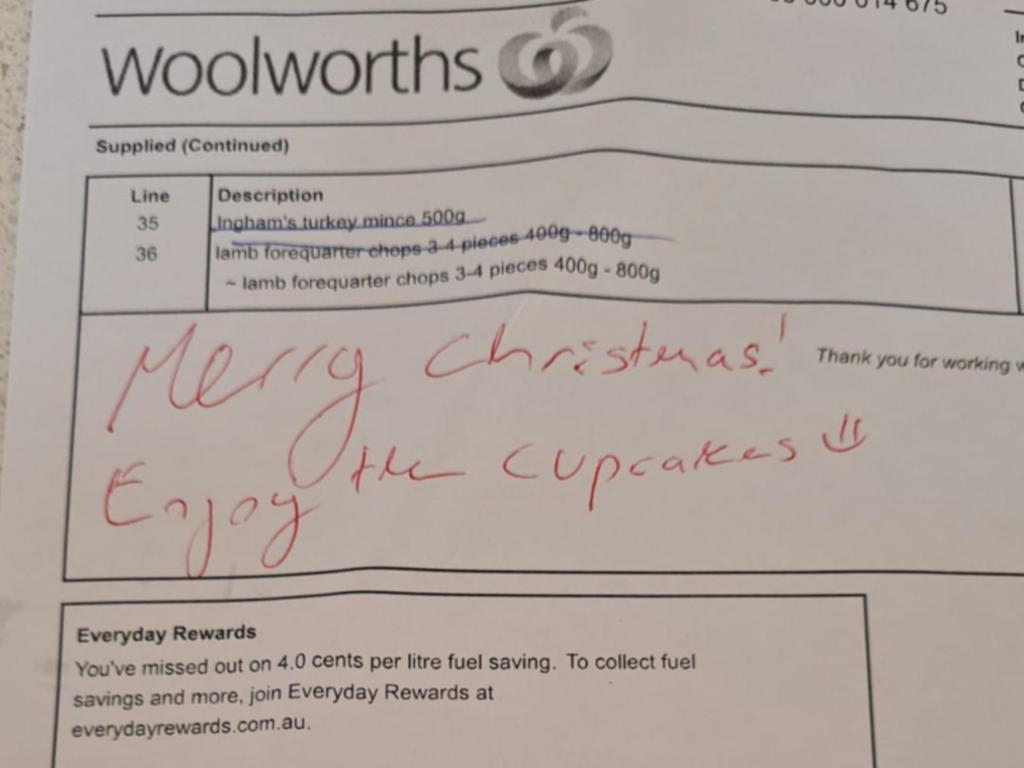 014 675
Woolworths
Supplied (Continued)
Line Description
35 Ingham's turkey mince 500g
36 lamb forequarter chops 3-4 pieces 400g - 800g
~ lamb forequarter chops 3-4 pieces 400g - 800g
Merry Christmas!
Thank you for working
Enjoy the cupcakes
Everyday Rewards
You've missed out on 4.0 cents per litre fuel saving. To collect fuel
savings and more, join Everyday Rewards at
everydayrewards.com.au.